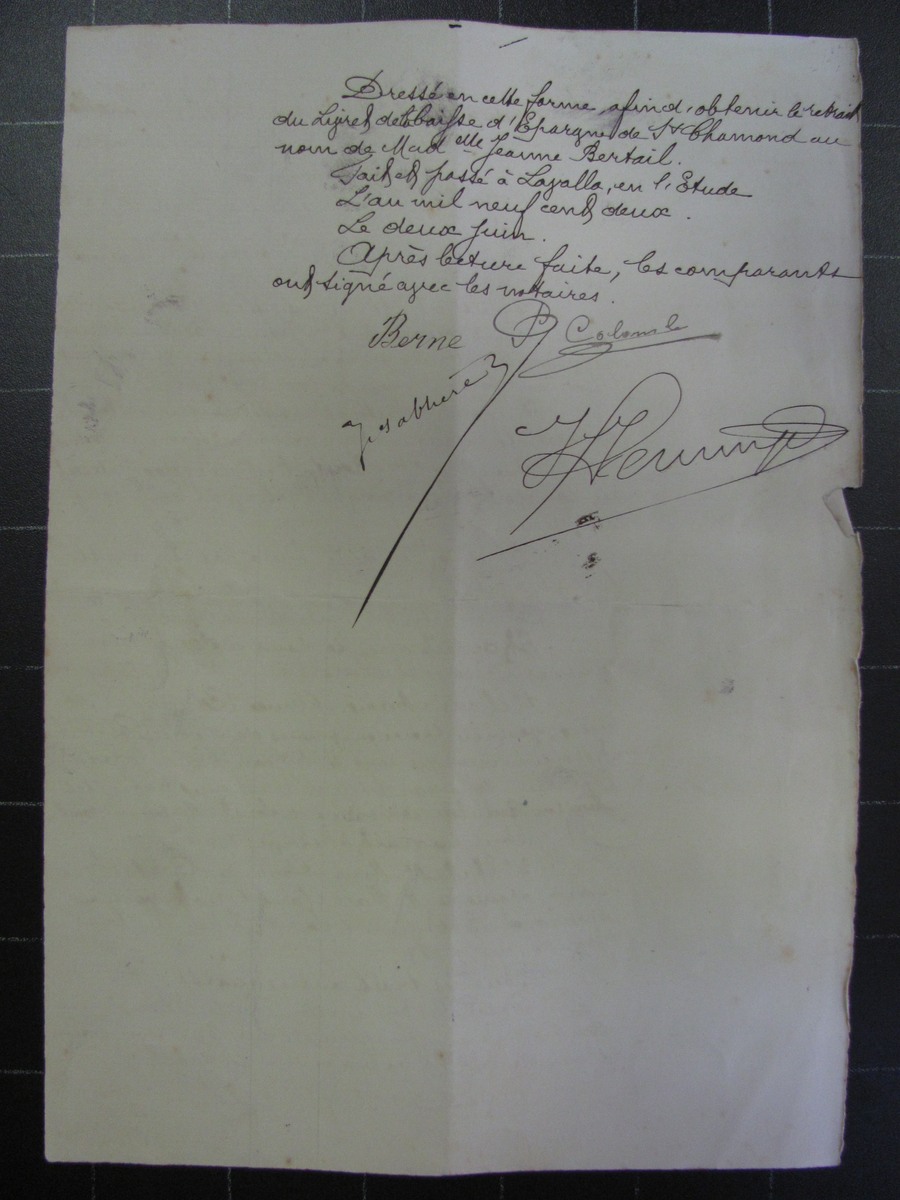 Dressé en cette forme, afin d'obtenir le retrait
du Livret de la Caisse d'Epargne de St Chamond au
nom de Mad elle Jeanne Bertail.
Fait et passé à Lavalla, en l'Etude
L'an mil neuf cent deux.
Le deux Juin.
Après lecture faite, les comparants
ont signé avec les notaires.
Berne Colombe